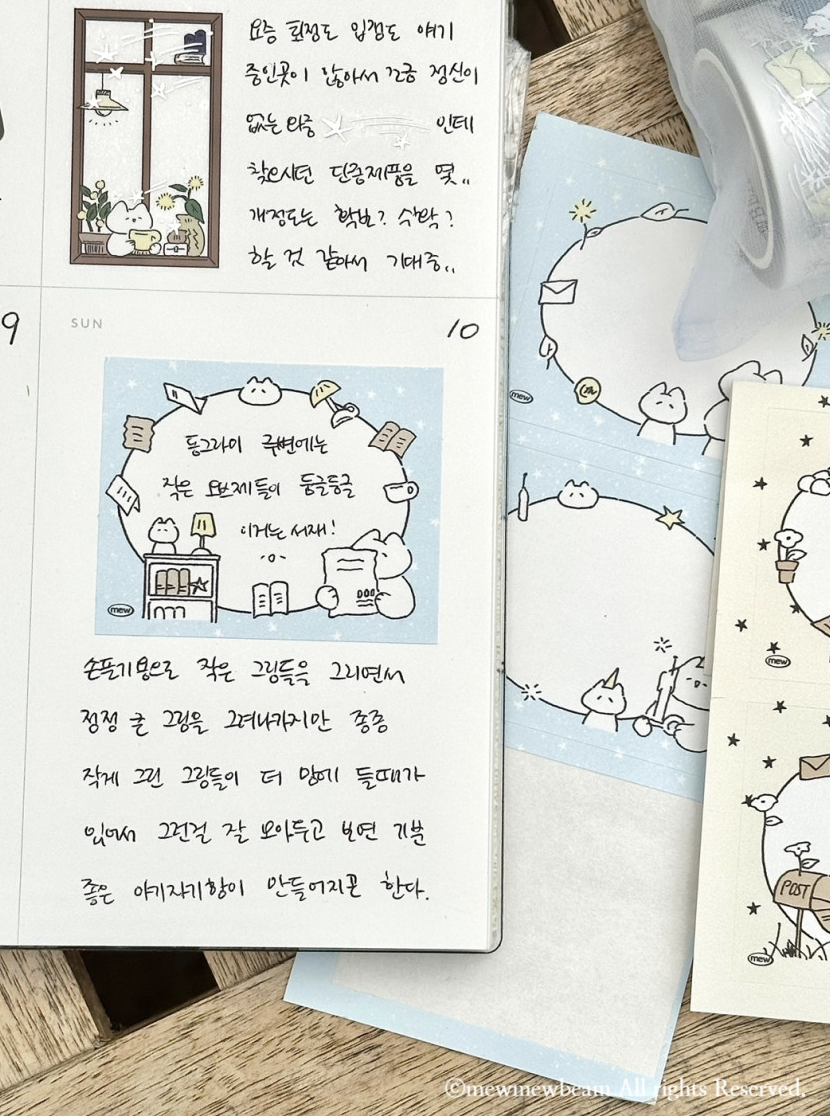 요즘 회정도 입점도 얘기
중인곳이 많아서 조금 정신이
없는 와중 인데
찾으시던 단종제품을 몇..
개정도는 확보? 수박?
할 것 같아서 기대중..
9
SUN
10
동그라미 주변에는
작은 오브제들이 둥글둥글
이거는 서재!
mew
손풀기용으로 작은 그림들을 그리면서
점점 큰 그림을 그려나가지만 종종
작게 그린 그림들이 더 맘에 들때가
있어서 그런걸 잘 모아두고 보면 기분
좋은 아기자기함이 만들어지곤 한다.
mew
mew
POST
mew
©mewmewbeam All rights Reserved.